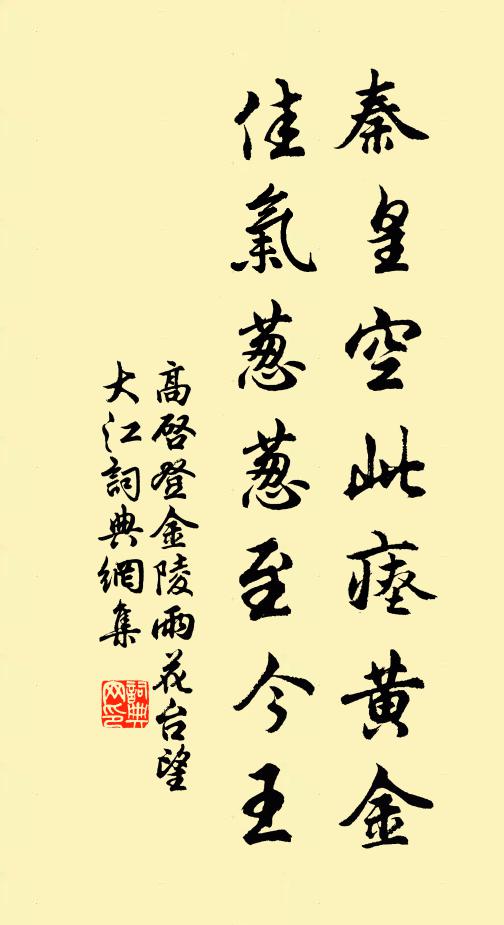 秦皇空此瘞黄金
佳氣葱葱至今王
高啓登金陵雨花台望
大江詞典網集
詞典
网印